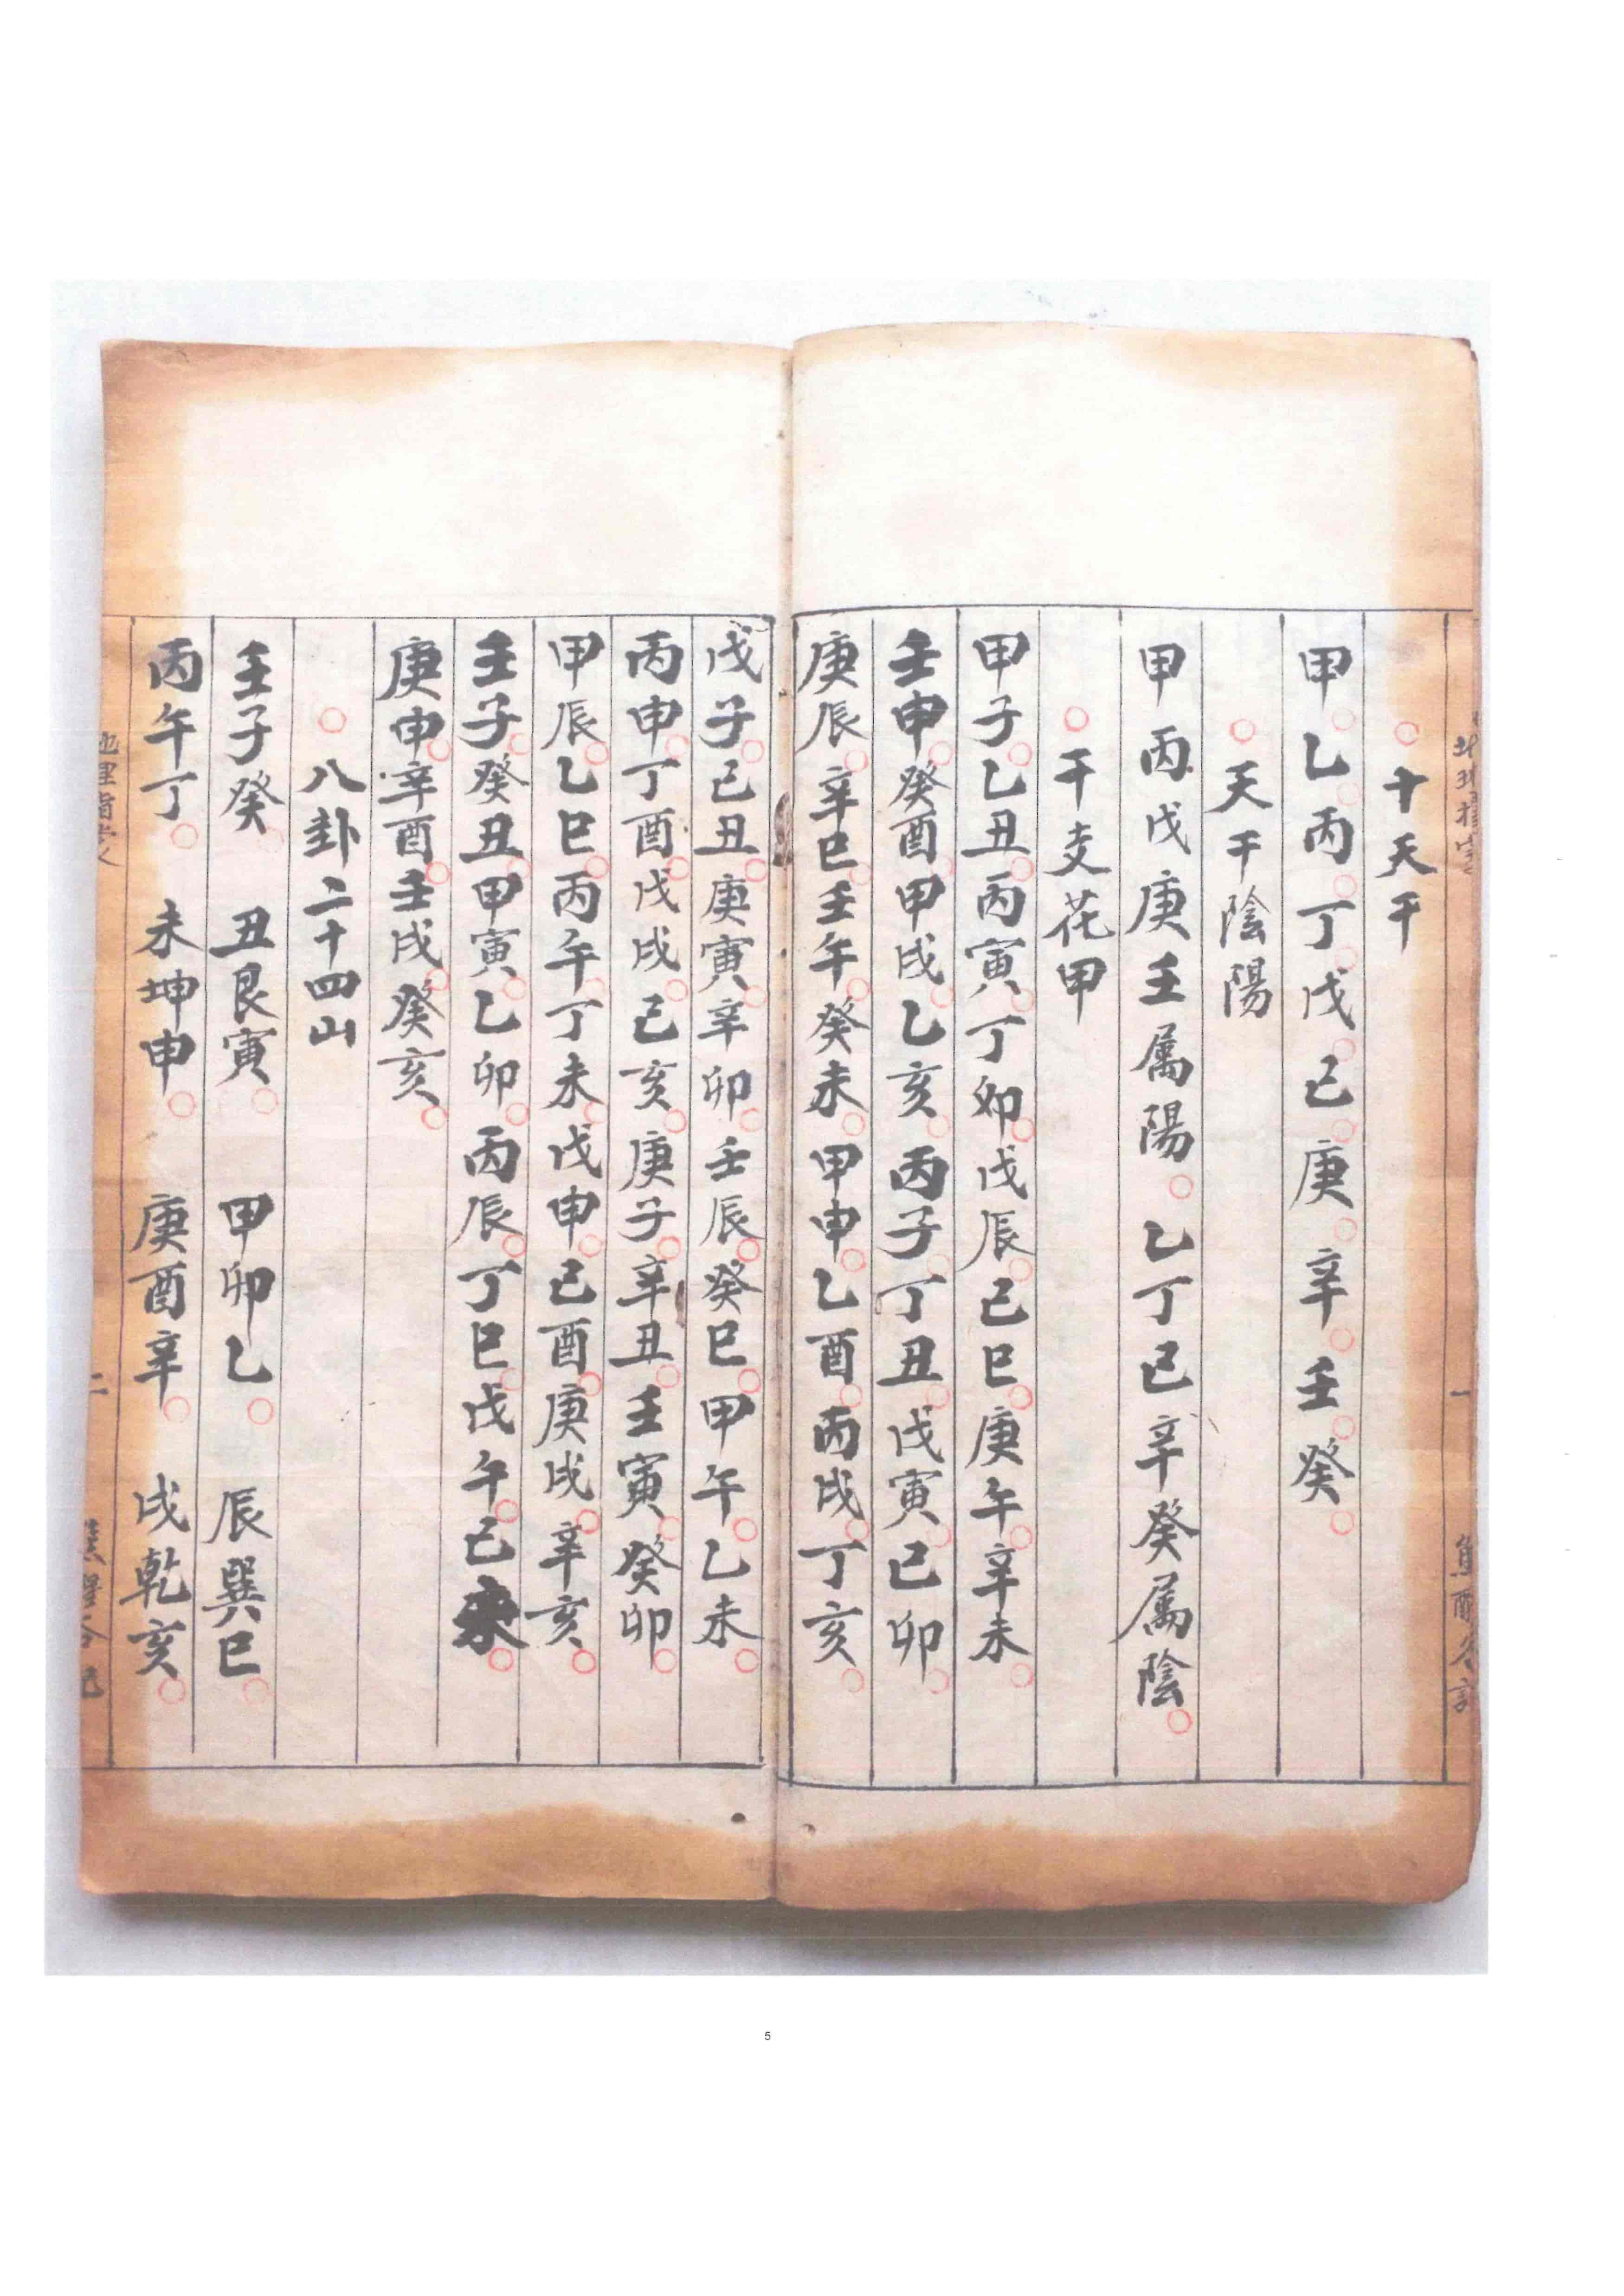 ○十天干
甲○乙○丙○丁○戊○己○庚○辛○壬○癸○
○天干陰陽
甲丙戊庚壬属陽○乙丁己辛癸属陰○
○干支花甲
甲子○乙丑○丙寅○丁卯○戊辰○己巳○庚午○辛未○
壬申○癸酉○甲戌○乙亥○丙子○丁丑○戊寅○己卯○
庚辰○辛巳○壬午○癸未○甲申○乙酉○丙戌○丁亥○
戊子○己丑○庚寅○辛卯○壬辰○癸巳○甲午○乙未○
丙申○丁酉○戊戌○己亥○庚子○辛丑○壬寅○癸卯○
甲辰○乙巳○丙午○丁未○戊申○己酉○庚戌○辛亥○
壬子○癸丑○甲寅○乙卯○丙辰○丁巳○戊午○己未○
庚申○辛酉○壬戌○癸亥○
○八卦二十四山
壬子癸○丑艮寅○甲卯乙○辰巽巳○
丙午丁○未坤申○庚酉辛○戌乾亥○
二
5